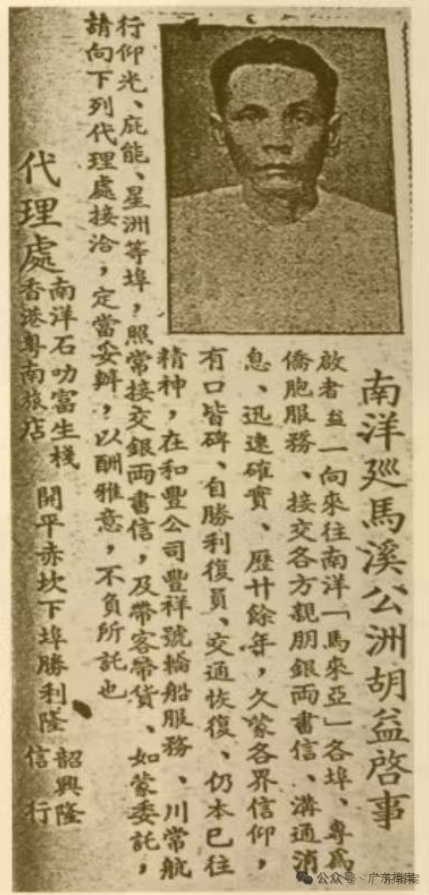 南洋廵馬溪公洲胡益啓事
啟者益一向來往南洋「馬來亞」各埠、專爲
僑胞服務、接交各方親朋銀両書信、溝通消
息、迅速確實、歷廿餘年，久蒙各界信仰，
有口皆碑、自勝利復員、交通恢復、仍本已往
精神，在和豐公司豐祥號輪船服務、川常航
行仰光、庇能、星洲等埠，照常接交銀両書信，及帶客帶貨、如蒙委託，
請向下列代理處接洽，定當妥辦，以酬雅意，不負所託也
代理處
南洋石叻富生棧
香港粤南旅店
開平赤坎下埠勝利隆
韶興隆
信行
公众号·广东档案